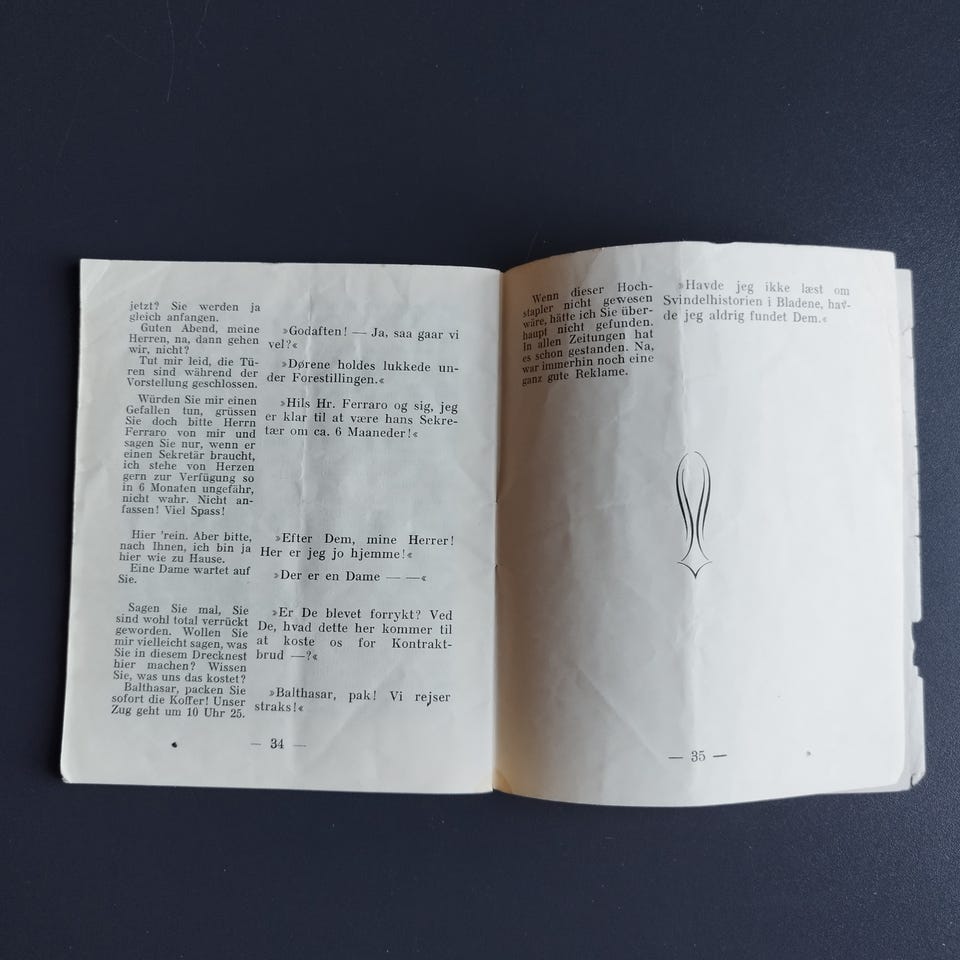 jetzt? Sie werden ja
gleich anfangen.
Guten Abend, meine
Herren, na, dann gehen
wir, nicht?
Tut mir leid, die Tü-
ren sind während der
Vorstellung geschlossen.
Würden Sie mir einen
Gefallen tun, grüssen
Sie doch bitte Herrn
Ferraro von mir und
sagen Sie nur, wenn er
einen Sekretär braucht,
ich stehe von Herzen
gern zur Verfügung so
in 6 Monaten ungefähr,
nicht wahr. Nicht an-
fassen! Viel Spass!
Hier 'rein. Aber bitte,
nach Ihnen, ich bin ja
hier wie zu Hause.
Eine Dame wartet auf
Sie.
Sagen Sie mal, Sie
sind wohl total verrückt
geworden. Wollen Sie
mir vielleicht sagen, was
Sie in diesem Drecknest
hier machen? Wissen
Sie, was uns das kostet?
Balthasar, packen Sie
sofort die Koffer! Unser
Zug geht um 10 Uhr 25.
»Godaften! — Ja, saa gaar vi
vel?«
»Dørene holdes lukkede un-
der Forestillingen.«
»Hils Hr. Ferraro og sig, jeg
er klar til at være hans Sekre-
tær om ca. 6 Maaneder!«
»Efter Dem, mine Herrer!
Her er jeg jo hjemme!«
»Der er en Dame — —«
»Er De blevet forrykt? Ved
De, hvad dette her kommer til
at koste os for Kontrakt-
brud —?«
»Balthasar, pak! Vi rejser
straks!«
— 34 —
Wenn dieser Hoch-
stapler nicht gewesen
wäre, hätte ich Sie über-
haupt nicht gefunden.
In allen Zeitungen hat
es schon gestanden. Na,
war immerhin noch eine
ganz gute Reklame.
»Havde jeg ikke læst om
Svindelhistorien i Bladene, hav-
de jeg aldrig fundet Dem.«
— 35 —